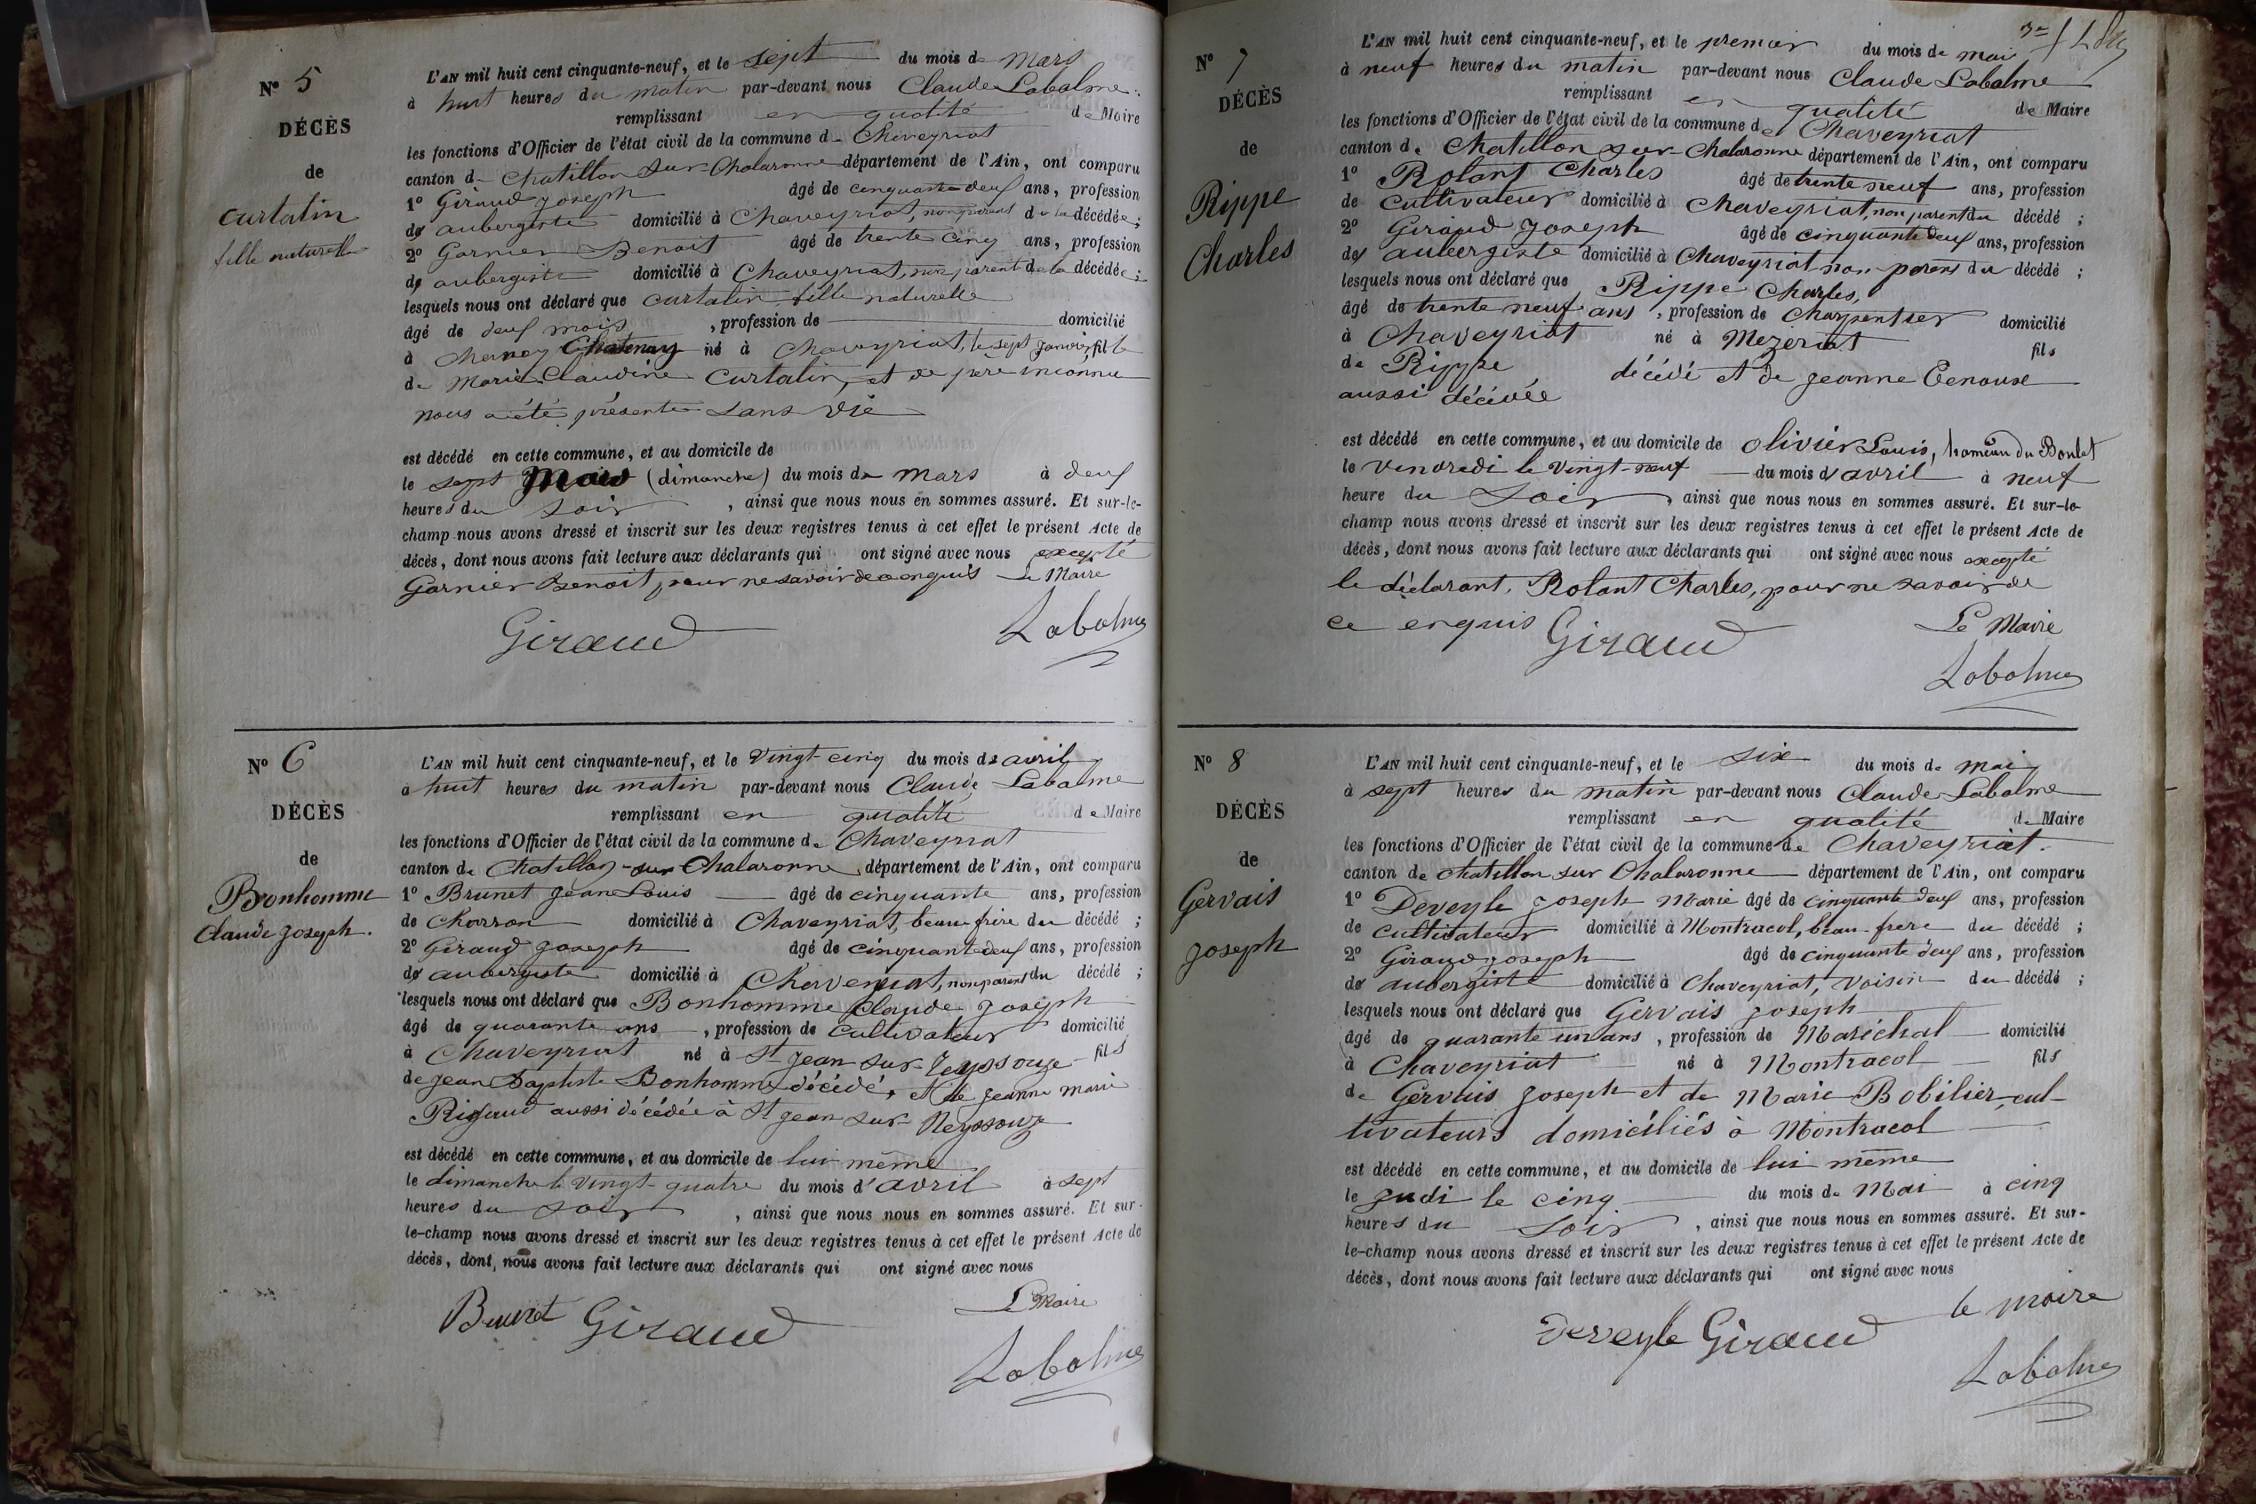 N° 5
DÉCÈS
de
Curtalin
fille naturelle
L'AN mil huit cent cinquante-neuf, et le sept du mois de Mars
à huit heures du matin par-devant nous Claude Labalme
remplissant en qualité de Maire
les fonctions d'Officier de l'état civil de la commune de Chaveyriat
canton de Chatillon sur Chalaronne département de l'Ain, ont comparu
1° Giraud Joseph âgé de cinquante deux ans, profession
de aubergiste domicilié à Chaveyriat, non parent de la décédée ;
2° Garnier Benoit âgé de trente cinq ans, profession
de aubergiste domicilié à Chaveyriat, non parent de la décédée ;
lesquels nous ont déclaré que Curtalin fille naturelle
âgé de deux mois , profession de domicilié
à Chatenay né à Chaveyriat, le sept janvier, fille
de Marie Claudine Curtalin, et de père inconnu
nous a été présenté sans vie
est décédé en cette commune, et au domicile de
le sept Mars (dimanche) du mois de mars à deux
heures du soir , ainsi que nous nous en sommes assuré. Et sur-le-
champ nous avons dressé et inscrit sur les deux registres tenus à cet effet le présent Acte de
décès, dont nous avons fait lecture aux déclarants qui ont signé avec nous excepté
Garnier Benoit, pour ne savoir de ce enquis Le Maire
Giraud Labalme
N° 6
DÉCÈS
de
Bonhomme
Claude Joseph.
L'AN mil huit cent cinquante-neuf, et le vingt-cinq du mois de avril
à huit heures du matin par-devant nous Claude Labalme
remplissant en qualité de Maire
les fonctions d'Officier de l'état civil de la commune de Chaveyriat
canton de Chatillon-sur Chalaronne département de l'Ain, ont comparu
1° Brunet Jean Louis âgé de cinquante ans, profession
de Charron domicilié à Chaveyriat, beau-frère du décédé ;
2° Giraud Joseph âgé de cinquante deux ans, profession
de aubergiste domicilié à Chaveyriat, non parent du décédé ;
lesquels nous ont déclaré que Bonhomme Claude Joseph
âgé de quarante ans , profession de cultivateur domicilié
à Chaveyriat né à St Jean-sur-Reyssouze fils
de Jean Baptiste Bonhomme décédé, et de Jeanne Marie
Rigaud aussi décédée à St Jean-sur-Reyssouze
est décédé en cette commune, et au domicile de lui même
le dimanche le vingt-quatre du mois d'avril à sept
heures du soir , ainsi que nous nous en sommes assuré. Et sur-
le-champ nous avons dressé et inscrit sur les deux registres tenus à cet effet le présent Acte de
décès, dont nous avons fait lecture aux déclarants qui ont signé avec nous
Le Maire
Brunet Giraud
Labalme
N° 7
DÉCÈS
de
Rippe
Charles
L'AN mil huit cent cinquante-neuf, et le premier du mois de mai
à neuf heures du matin par-devant nous Claude Labalme
remplissant en qualité de Maire
les fonctions d'Officier de l'état civil de la commune de Chaveyriat
canton de Chatillon sur-Chalaronne département de l'Ain, ont comparu
1° Rolant Charles âgé de trente neuf ans, profession
de cultivateur domicilié à Chaveyriat, non parent du décédé ;
2° Giraud Joseph âgé de cinquante deux ans, profession
de aubergiste domicilié à Chaveyriat non parent du décédé ;
lesquels nous ont déclaré que Rippe Charles,
âgé de trente neuf ans , profession de Charpentier domicilié
à Chaveyriat né à Mezeriat
fils
de Rippe décédé et de Jeanne
aussi décédée
est décédé en cette commune, et au domicile de Olivier Louis, hameau du
le vendredi le vingt-neuf du mois d'avril à neuf
heure du Soir , ainsi que nous nous en sommes assuré. Et sur-le-
champ nous avons dressé et inscrit sur les deux registres tenus à cet effet le présent Acte de
décès, dont nous avons fait lecture aux déclarants qui ont signé avec nous excepté
le déclarant, Rolant Charles, pour ne savoir de
ce enquis Giraud Le Maire
Labalme
N° 8
DÉCÈS
de
Gervais
Joseph
L'AN mil huit cent cinquante-neuf, et le six du mois de mai
à sept heures du matin par-devant nous Claude Labalme
remplissant en qualité de Maire
les fonctions d'Officier de l'état civil de la commune de Chaveyriat.
canton de Chatillon sur Chalaronne département de l'Ain, ont comparu
1° Deveyle Joseph Marie âgé de cinquante deux ans, profession
de cultivateur domicilié à Montracol, beau-frère du décédé ;
2° Giraud Joseph âgé de cinquante deux ans, profession
de aubergiste domicilié à Chaveyriat, voisin du décédé ;
lesquels nous ont déclaré que Gervais Joseph
âgé de quarante un ans , profession de Maréchal domicilié
à Chaveyriat né à Montracol fils
de Gervais Joseph et de Marie Bobilier, cul-
tivateurs domiciliés à Montracol
est décédé en cette commune, et au domicile de lui même
le jeudi le cinq du mois de Mai à cinq
heures du soir , ainsi que nous nous en sommes assuré. Et sur-
le-champ nous avons dressé et inscrit sur les deux registres tenus à cet effet le présent Acte de
décès, dont nous avons fait lecture aux déclarants qui ont signé avec nous
le maire
Deveyle Giraud
Labalme